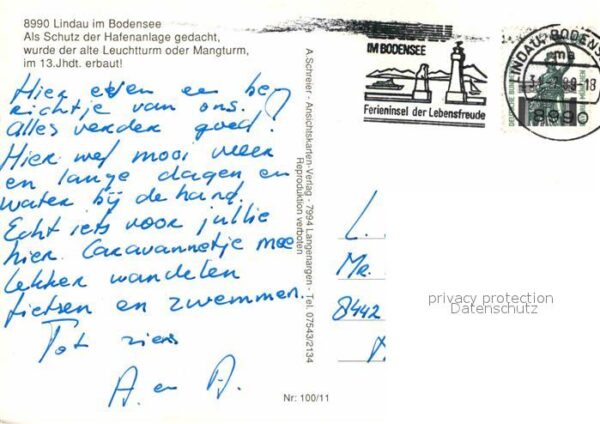 8990 Lindau im Bodensee
Als Schutz der Hafenanlage gedacht,
wurde der alte Leuchtturm oder Mangturm,
im 13.Jhdt. erbaut!
Hier even een be
richtje van ons.
Alles verder goed!
Hier wel mooi weer
en lange dagen en
water bij de hand.
Echt iets voor jullie
hier. Caravannetje mee
lekker wandelen
fietsen en zwemmen.
Tot ziens
A. en A.
A.Schreier - Ansichtskarten-Verlag - 7994 Langenargen - Tel. 07543/2134
Reproduktion verboten
Nr: 100/11
IM BODENSEE
Ferieninsel der Lebensfreude
LINDAU, BODENS
ma
-18
8990
DEUTSCHE BUN
L.
Mr.
8442
privacy protection
Datenschutz